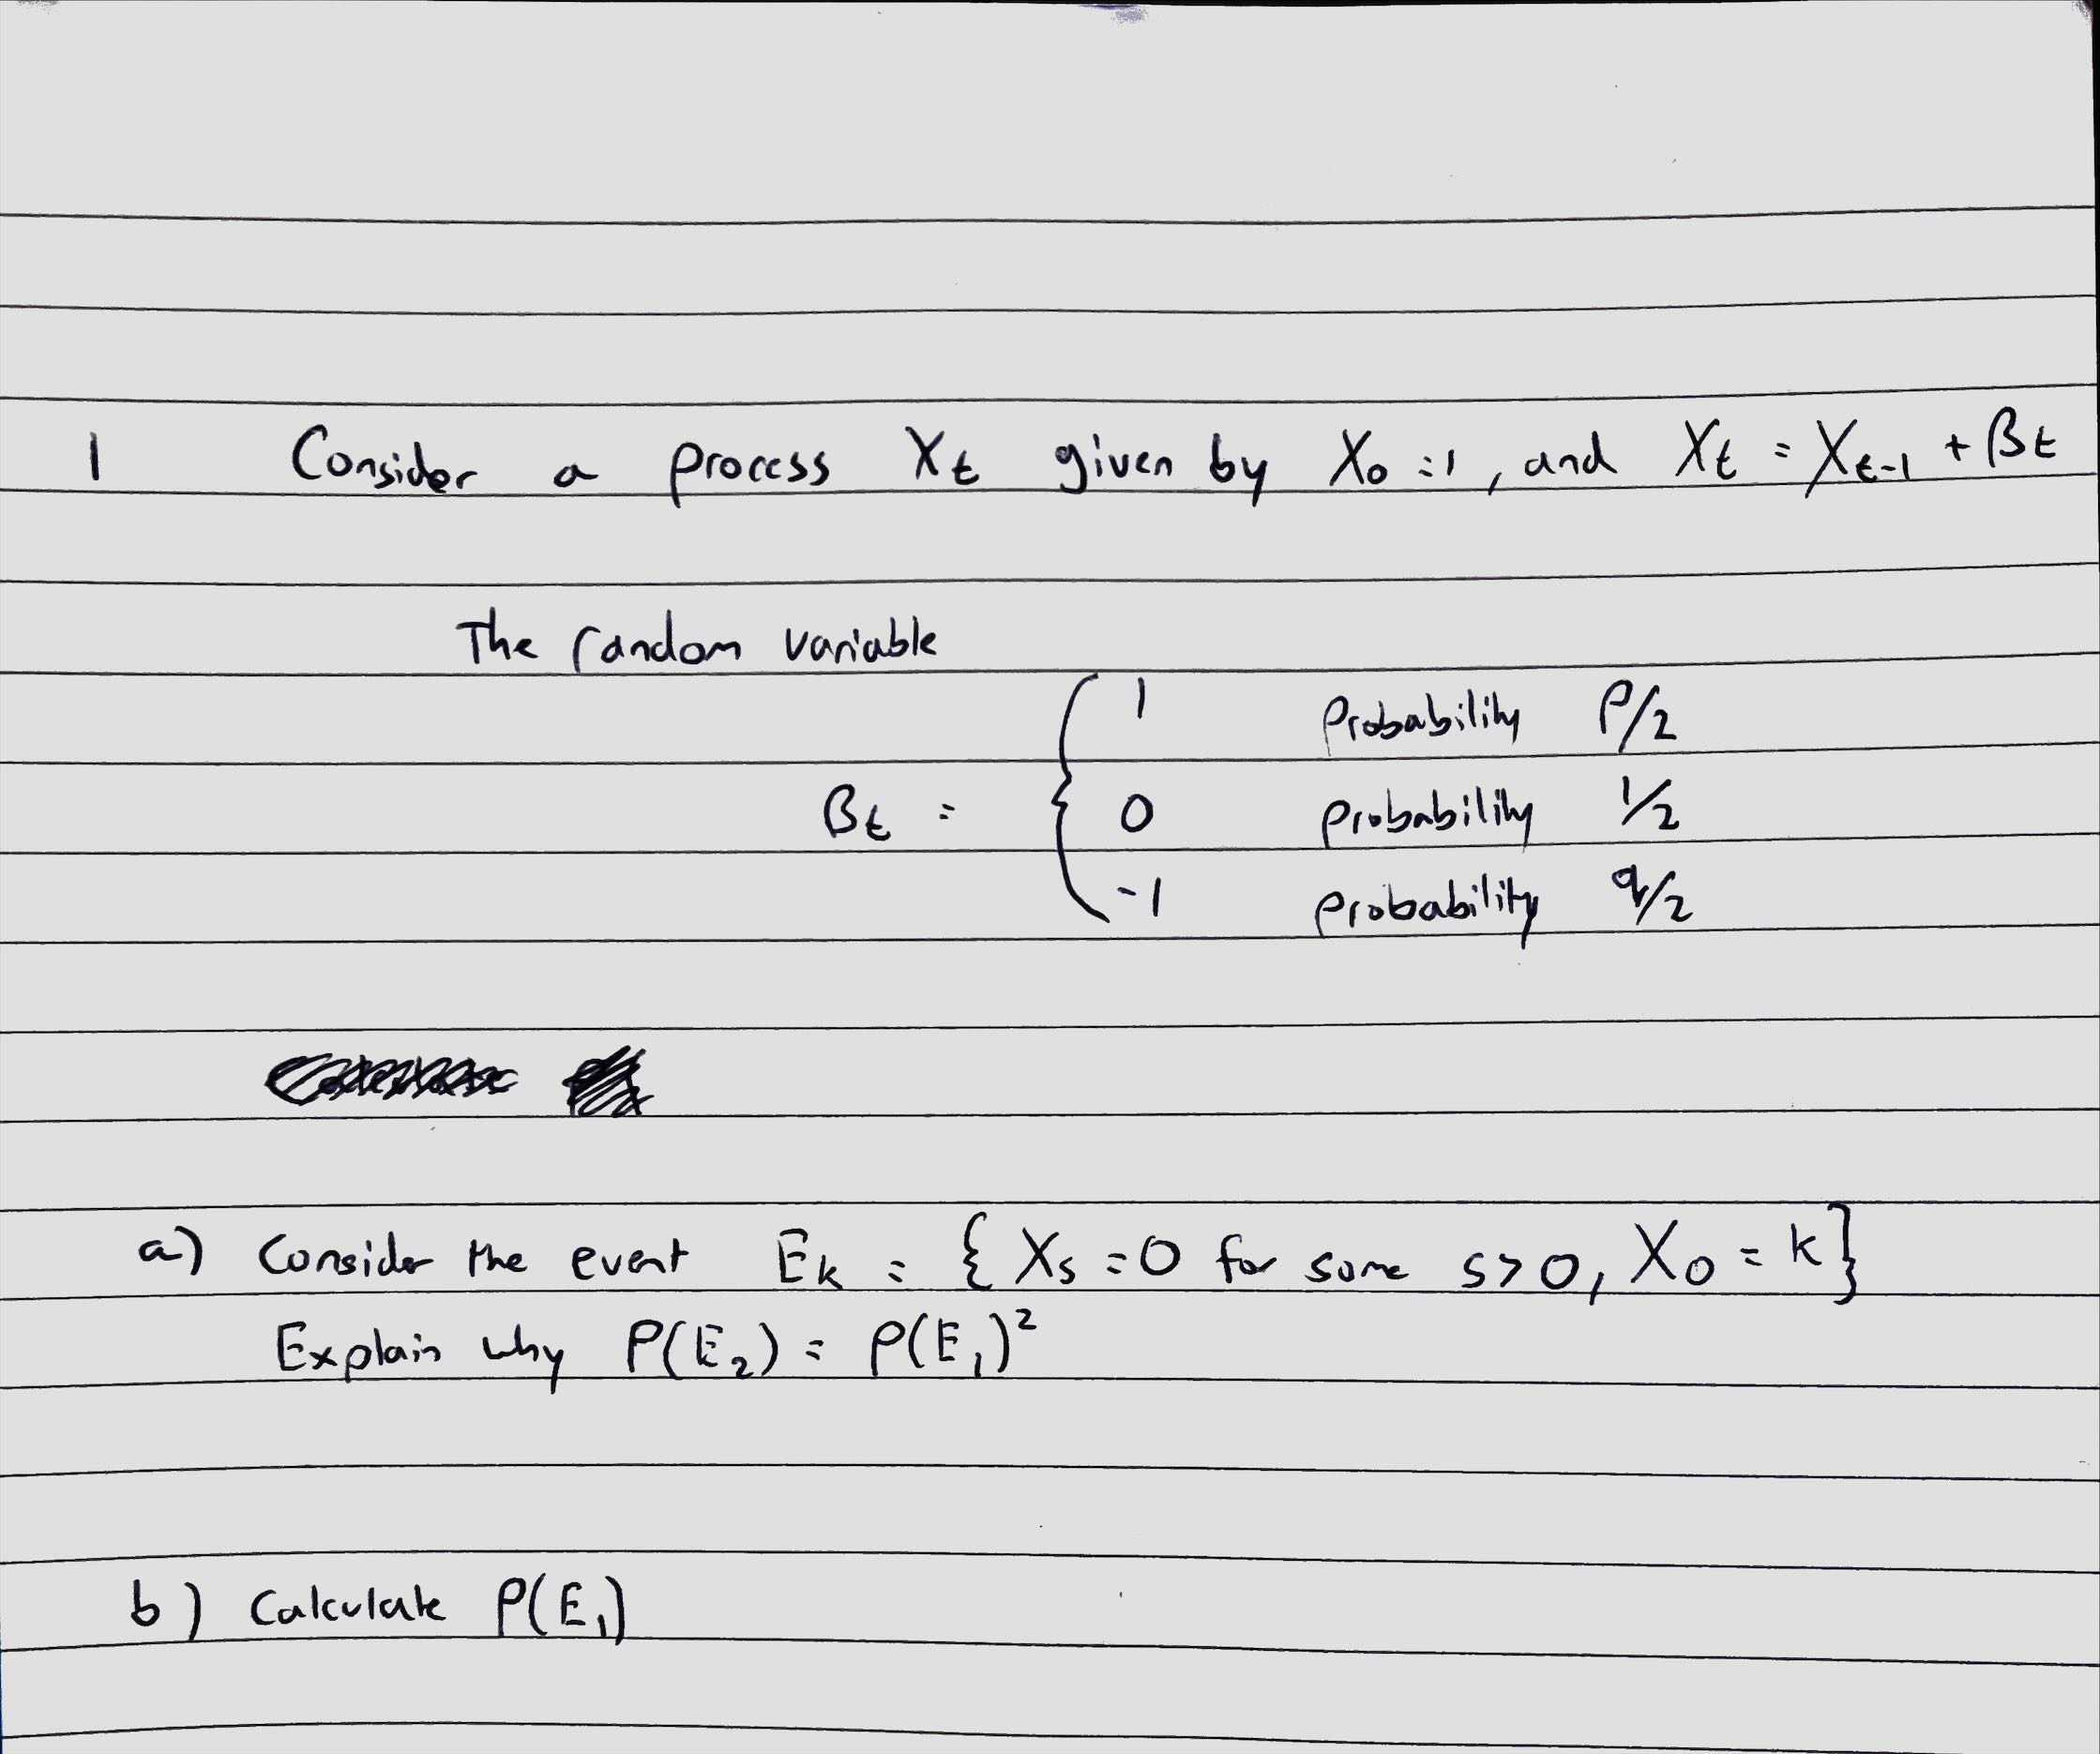 1 Consider a process Xₜ given by X₀ = 1, and Xₜ = Xₜ₋₁ + Bₜ
The random variable
1 Probability P/2
Bₜ = { 0 probability 1/2
-1 probability q/2
a) Consider the event Eₖ = { Xₛ = 0 for some s > 0, X₀ = k }
Explain why P(E₂) = P(E₁)²
b) Calculate P(E₁)